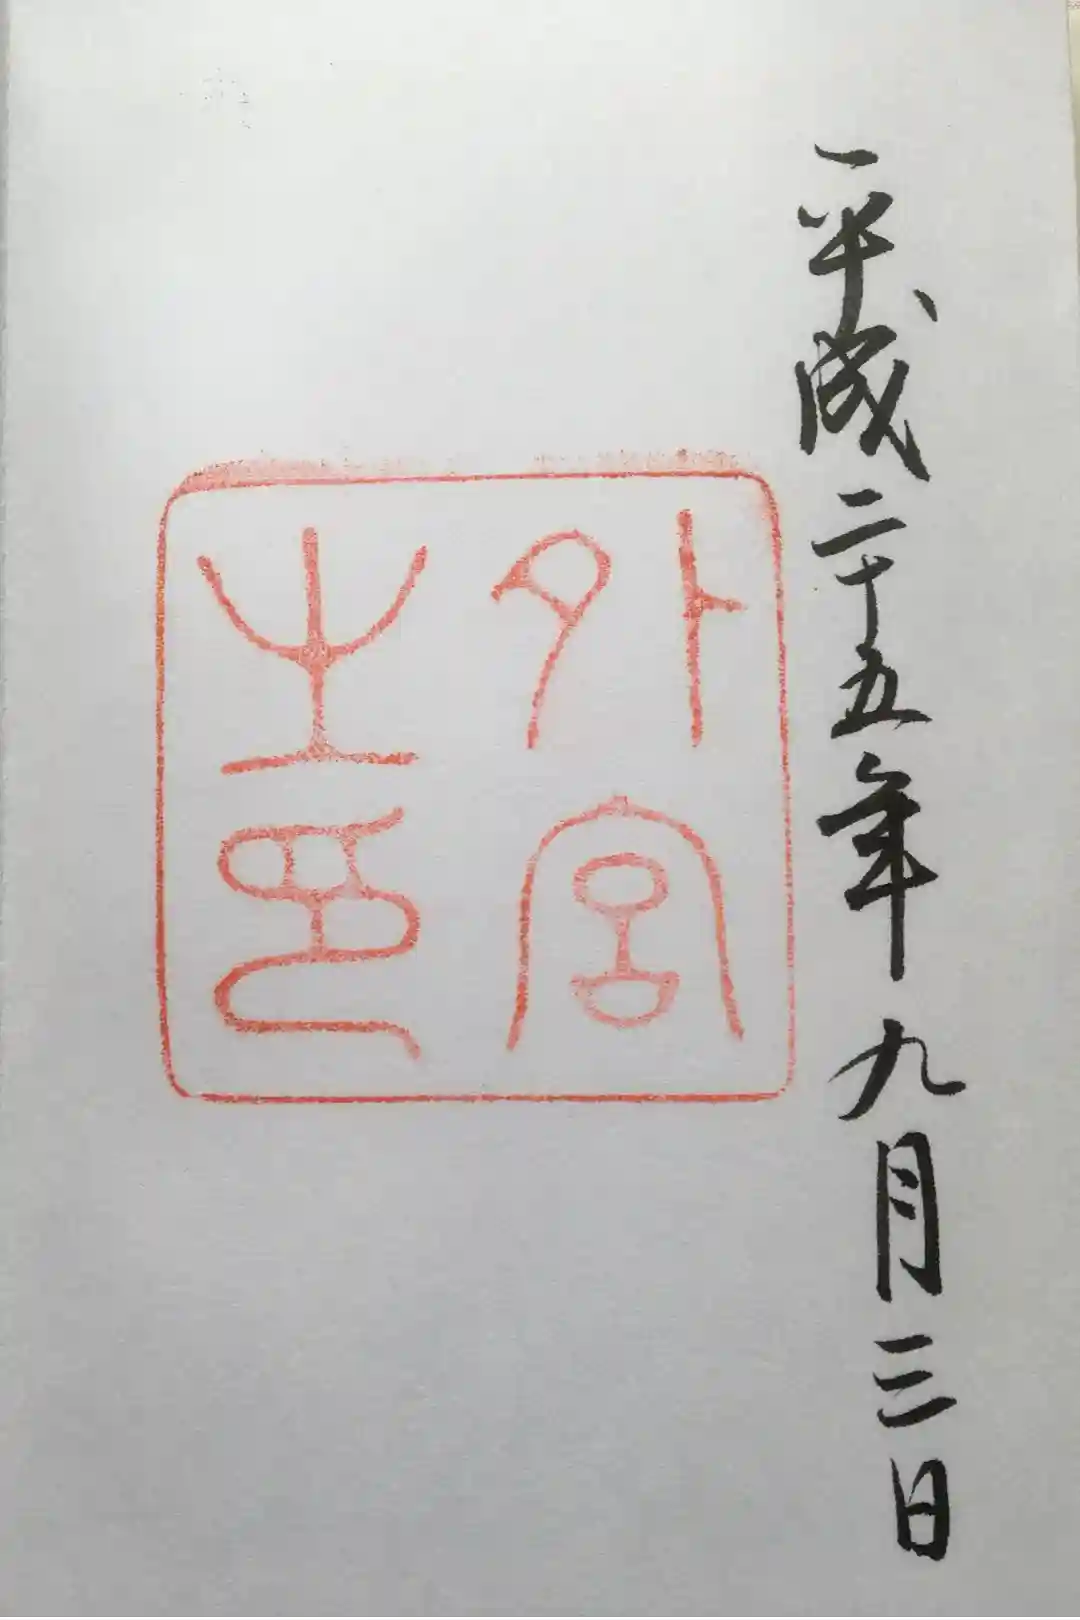 平成二十五年九月三日
外宮
之印